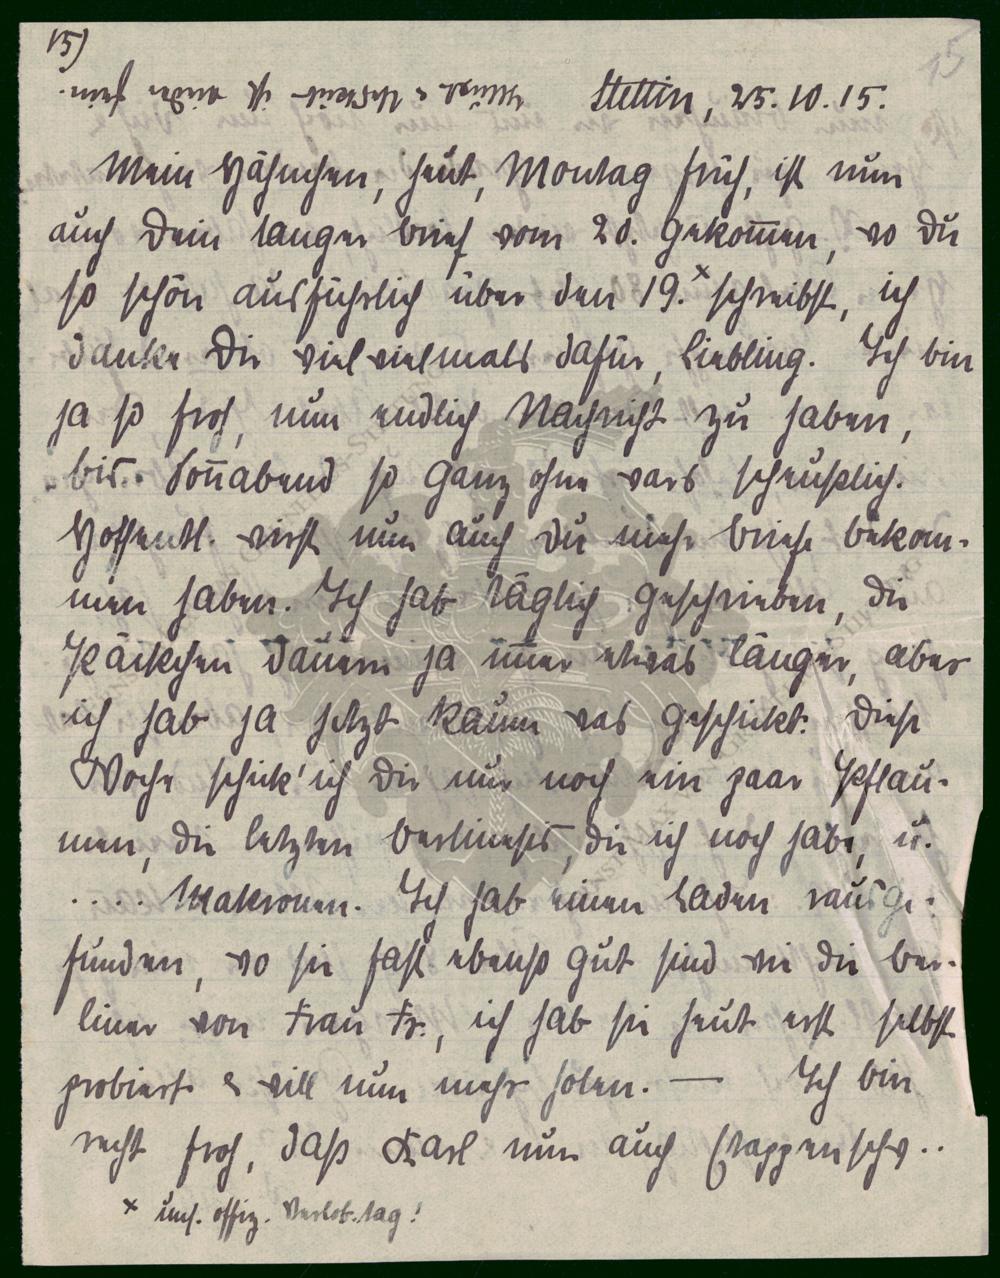 15)
15
Stettin, 25.10.15.
Mein Hähnchen, heut, Montag früh, ist nun
auch Dein langer Brief vom 20. gekommen, wo Du
so schön ausführlich über den 19.x schreibst, ich
danke Dir viel vielmals dafür, Liebling. Ich bin
ja so froh, nun endlich Nachricht zu haben,
bis.. Sonnabend so ganz ohne wars scheußlich.
Hoffentl. wirst nun auch Du mehr Briefe bekom-
men haben. Ich hab täglich geschrieben, die
Päckchen dauern ja immer etwas länger, aber
ich hab ja jetzt kaum was geschickt. Diese
Woche schick' ich Dir nur noch ein paar Pflau-
men, die letzten, die ich noch habe, u.
.... Makronen. Ich hab einen Laden rausge-
funden, wo sie fast ebenso gut sind wie die Ber-
liner von Frau Fr., ich hab sie heut erst selbst
probiert & will nun mehr holen. — Ich bin
recht froh, daß Karl nun auch
x uns. offiz. Verlob.tag!